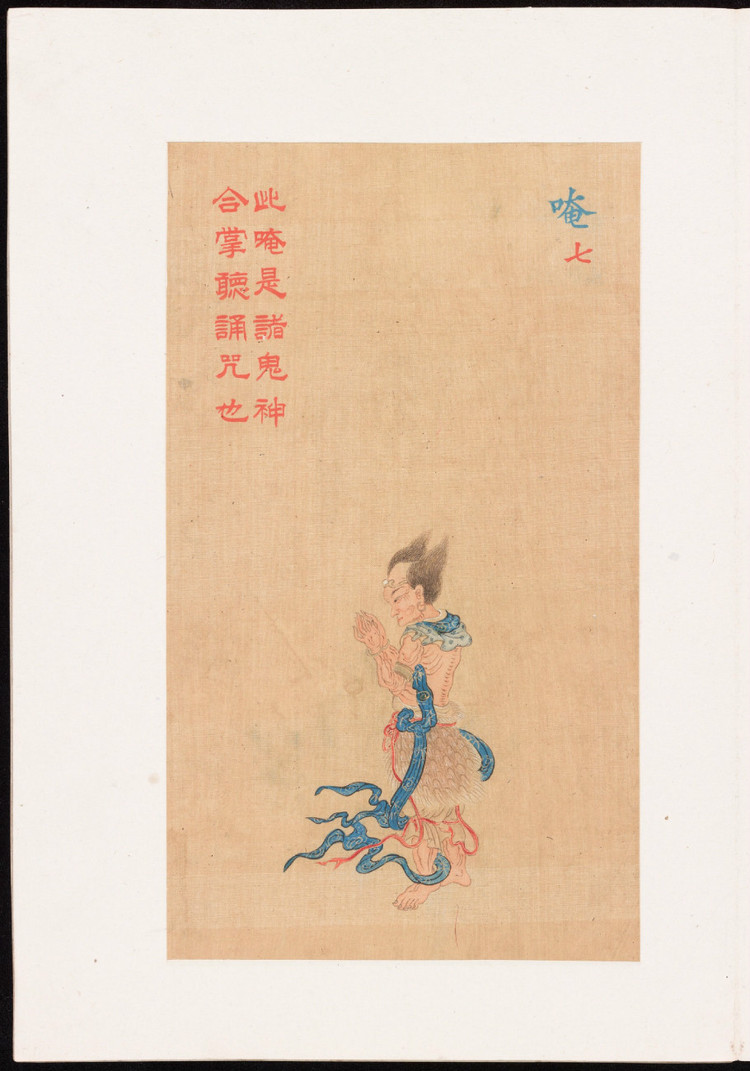 唵
七
此唵是諸鬼神
合掌聽誦咒也